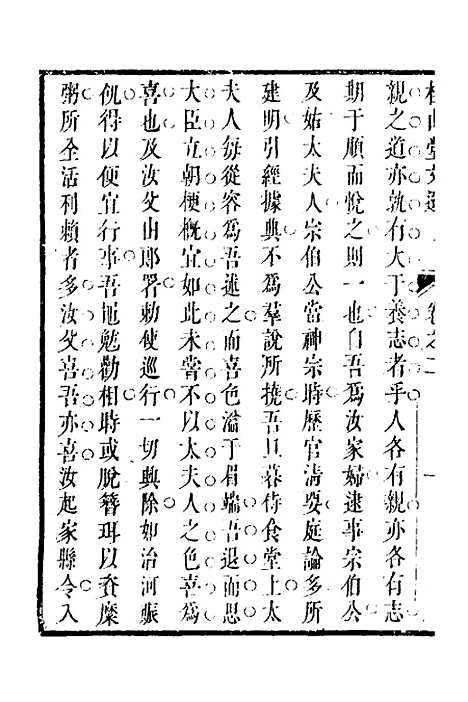 親之道亦孰有大于養志者乎人各有親亦各有志
期于順而悅之則一也自吾為汝家婦逮事宗伯公
及姑太夫人宗伯公當神宗時歷官清要庭論多所
建明引經據典不為羣說所撓吾旦暮侍食堂上太
夫人每從容為吾述之而喜色溢于眉端吾退而思
大臣立朝梗概宜如此未嘗不以太夫人之色喜為
喜也及汝父由郎署勅使巡行一切興除如治河賑
饑得以便宜行事吾黽勉勸相時或脫簪珥以充糜
粥所全活利賴者多汝父喜吾亦喜汝起家縣令入